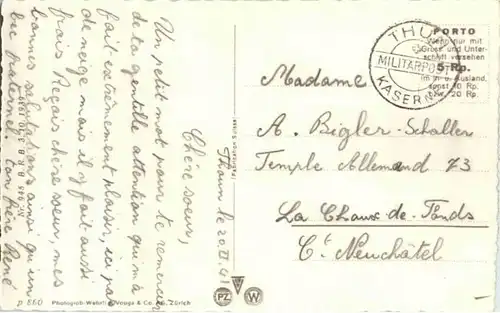 Thoun le 20.II.41
Chère soeur,
Un petit mot pour te remercier
de ta gentille attention qui m'a
fait extrêmement plaisir, ici pas
de neige mais il y fait aussi
frais. Reçois chère soeur, mes
bonnes salutations ainsi qu'un
bec fraternel. Ton frère René
THUN
MILITÄRPOST
KASERNE
PORTO
Wenn nur mit
Gruss und Unter-
schrift versehen
5 Rp.
im In- u. Ausland,
sonst 10 Rp.
bzw. 20 Rp.
Madame
A. Bigler-Schaller
Temple Allemand 73
La Chaux-de-Fonds
Ct. Neuchâtel
p 860 Photoglob-Wehrli & Vouga & Co. AG. Zürich
PZ W